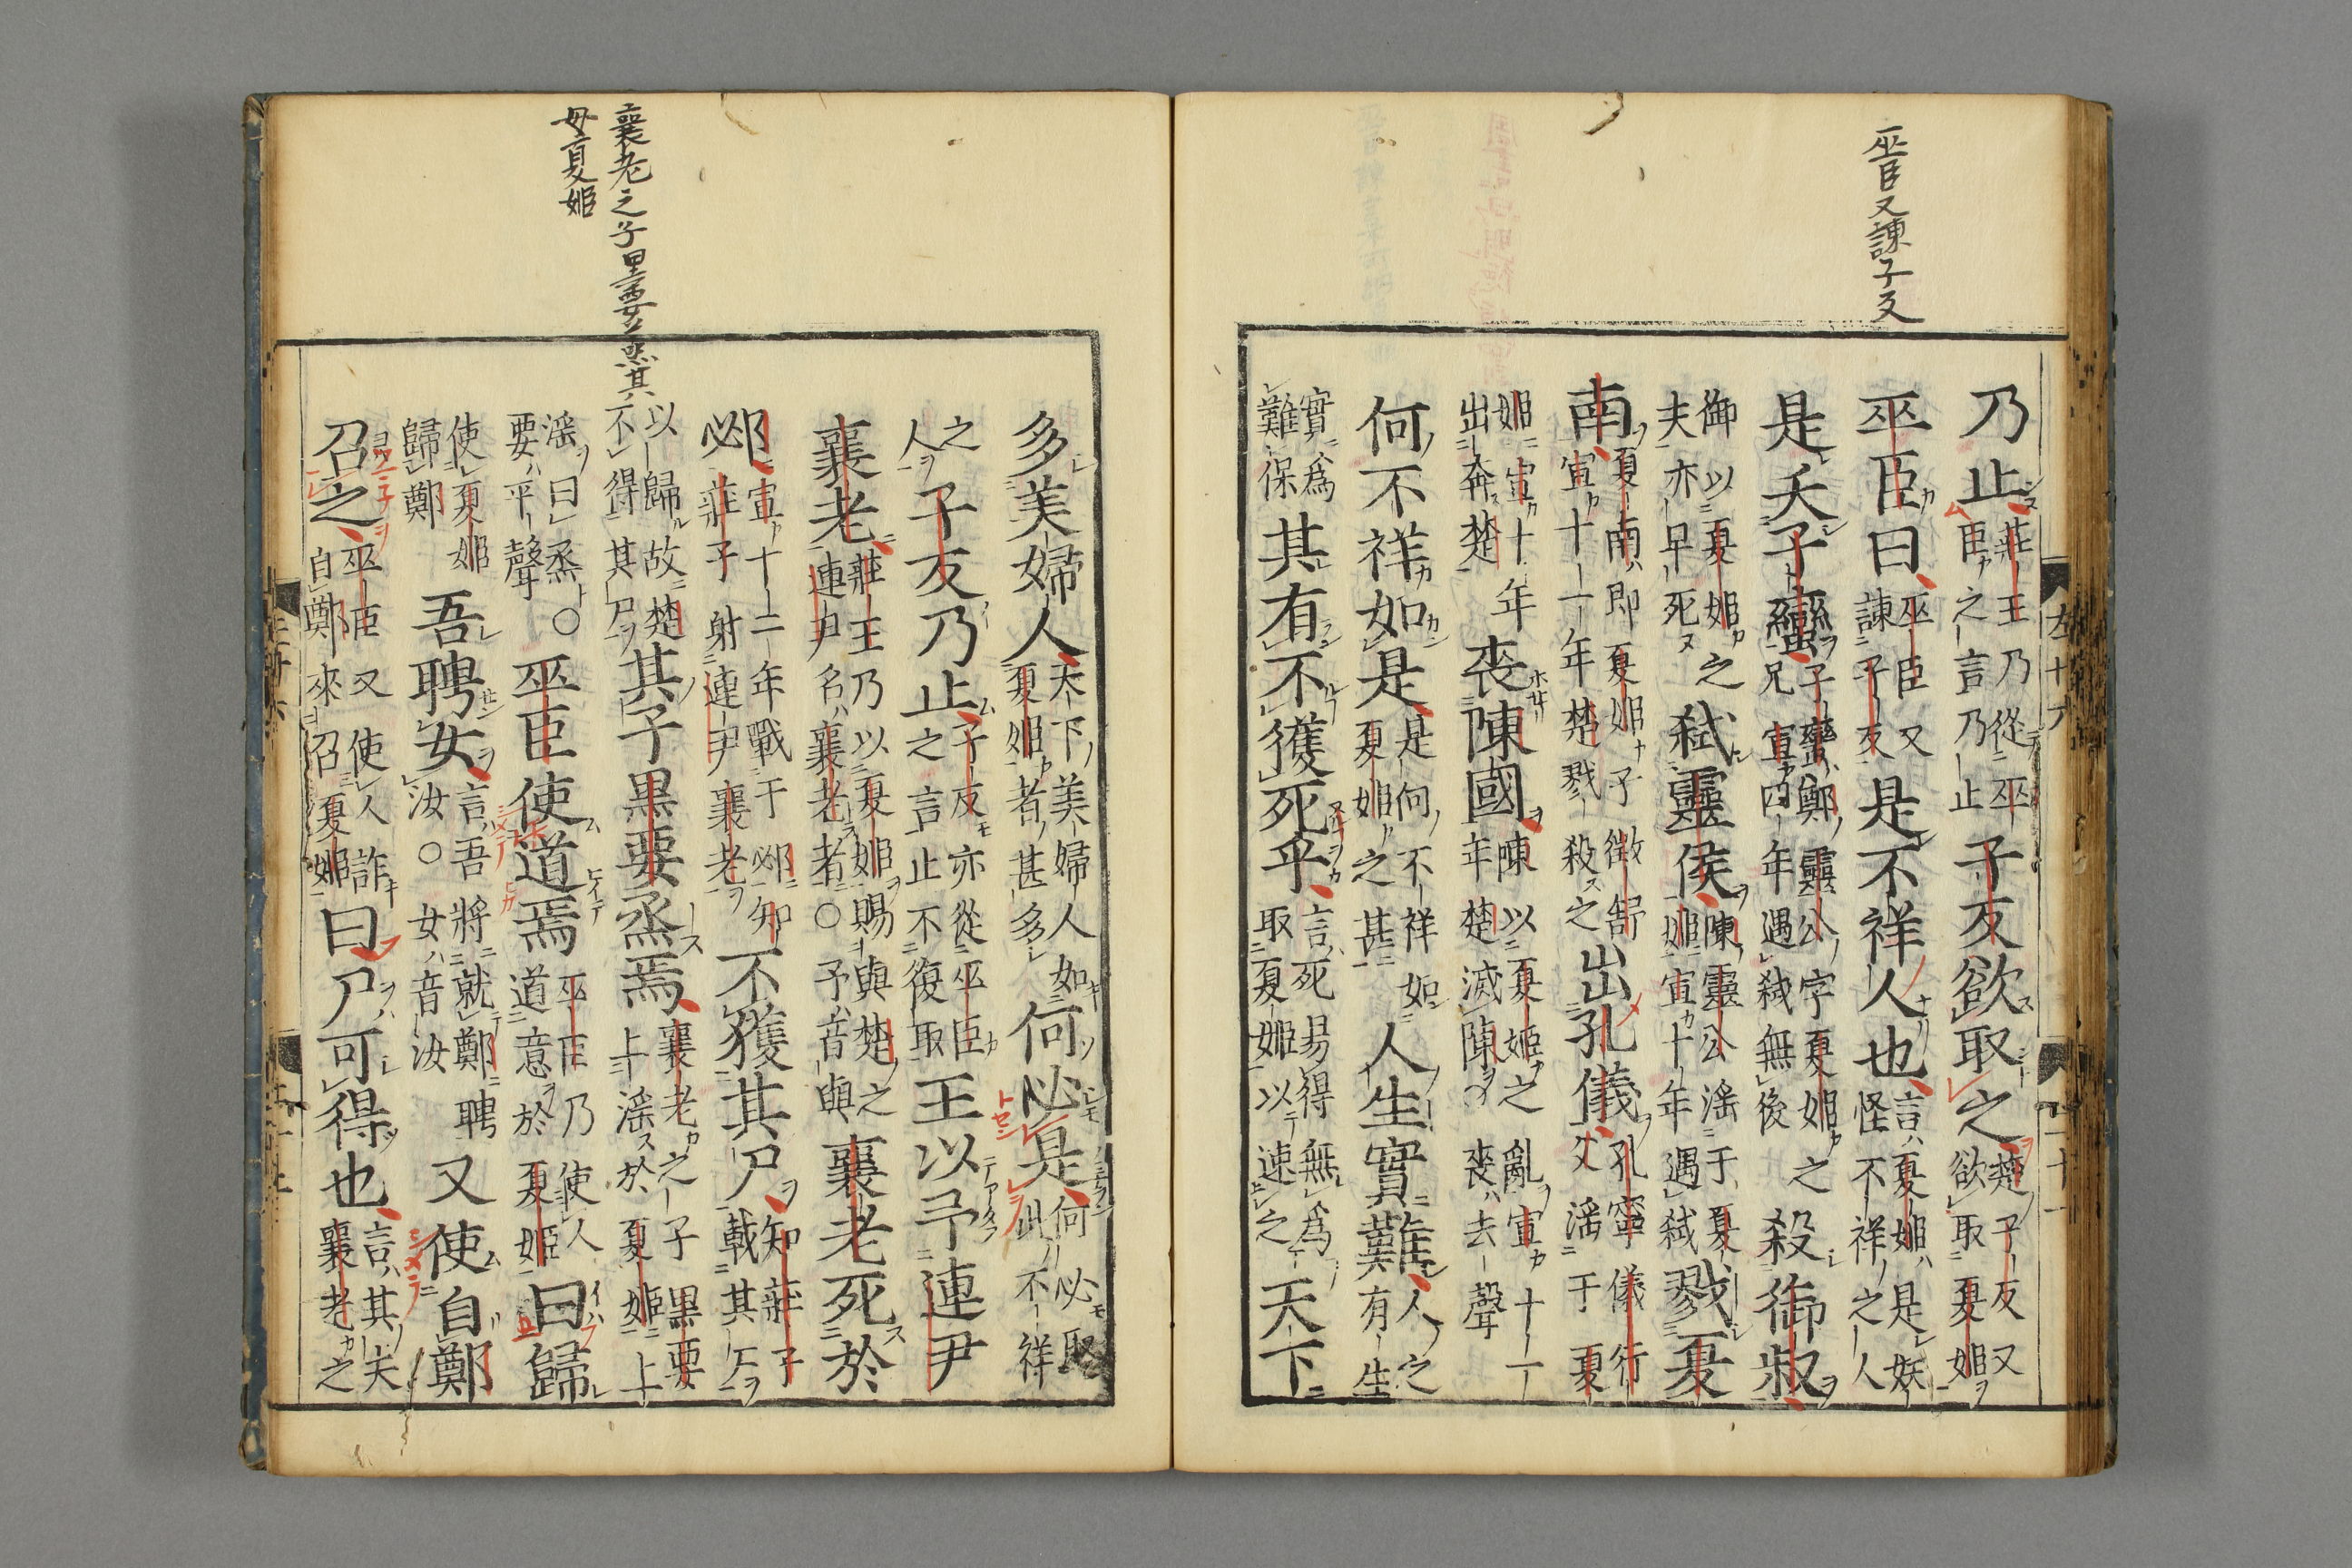 巫臣又諫子反
乃止莊王乃從巫臣之言乃止子反欲取之楚子反又欲取夏姬
巫臣曰巫臣又諫子反是不祥人也言夏姬是妖怪不祥之人
是夭子蠻子蠻鄭靈公字夏姬之兄宣四年遇弒無後殺御叔
御以夏姬之夫亦早死弒靈侯陳靈公淫于夏姬宣十年遇弒戮夏
南夏南即夏姬子徵舒宣十一年楚戮殺之出孔儀孔寧儀行父淫于夏
姬宣十年出奔楚喪陳國陳以夏姬之亂宣十一年楚滅陳喪去聲
何不祥如是是何不祥如夏姬之甚人生實難人之有生
實為難保其有不獲死乎言死易得無為取夏姬以速之天下
襄老之子黑要烝其
母夏姬
多美婦人天下美婦人如夏姬者甚多何必是何必取此不祥
之人子反乃止子反亦從巫臣之言止不復取王以予連尹
襄老莊王乃以夏姬賜與楚之連尹名襄老者○予音與襄老死於
邲宣十二年戰于邲知莊子射連尹襄老不獲其尸知莊子載其尸
以歸故楚不得其尸其子黑要烝焉襄老之子黑要上淫於夏姬上
淫曰烝○要平聲巫臣使道焉巫臣乃使人道意於夏姬曰歸
使夏姬歸鄭吾聘女言吾將就鄭聘汝○女音汝又使自鄭
召之巫臣又使人詐自鄭來召夏姬曰尸可得也言其夫襄老之